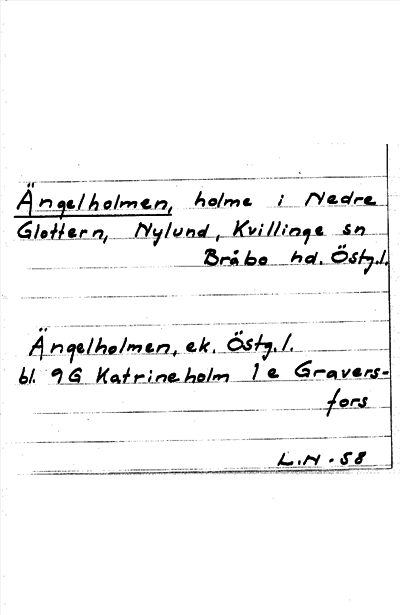 Ängelholmen, holme i Nedre
Glottern, Nylund, Kvillinge sn
Bråbo hd. Östg.l.
Ängelholmen, ek. Östg.l.
bl. 9G Katrineholm 1e Gravers-
fors
L.N - 58